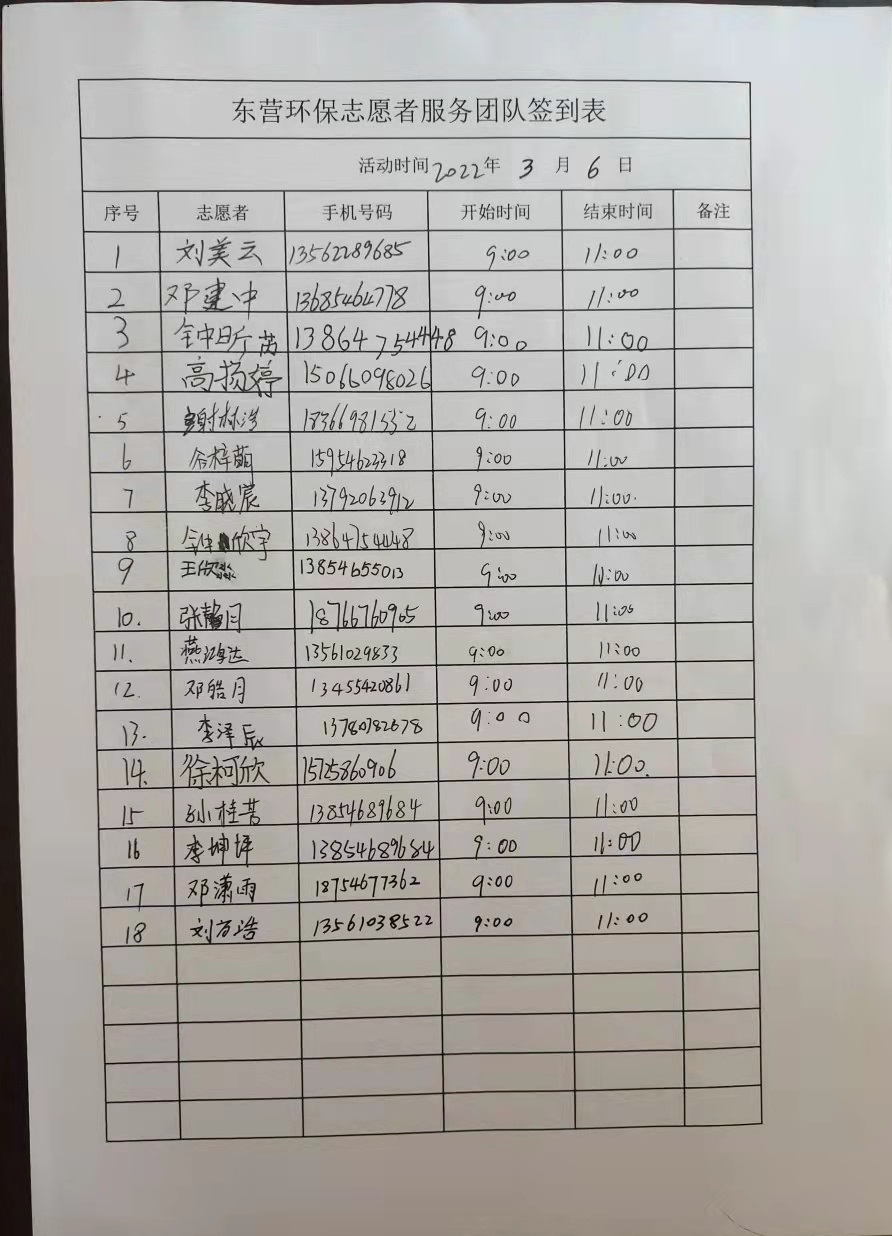 东营环保志愿者服务团队签到表
活动时间2022年 3 月 6 日
序号 志愿者 手机号码 开始时间 结束时间 备注
1 刘美云 13562289685 9:00 11:00
2 邓建中 13685464778 9:00 11:00
3 13864754448 9:00 11:00
4 高扬婷 15066098026 9:00 11:00
5 谢林浩 9:00 11:00
6 谷梓萌 15954623318 9:00 11:00
7 李晓宸 13792063912 9:00 11:00
8 钟欣宇 13864754448 9:00 11:00
9 王欣淼 13854655013 9:00 11:00
10. 张静月 18766760965 9:00 11:00
11. 燕鸿达 13561029833 9:00 11:00
12. 邓皓月 13455420861 9:00 11:00
13. 李泽辰 13780782678 9:00 11:00
14. 徐柯欣 15725860906 9:00 11:00.
15 孙桂芳 13854689684 9:00 11:00
16 李坤坪 13854689684 9:00 11:00
17 邓潇雨 18754677362 9:00 11:00
18 刘方浩 13561038522 9:00 11:00